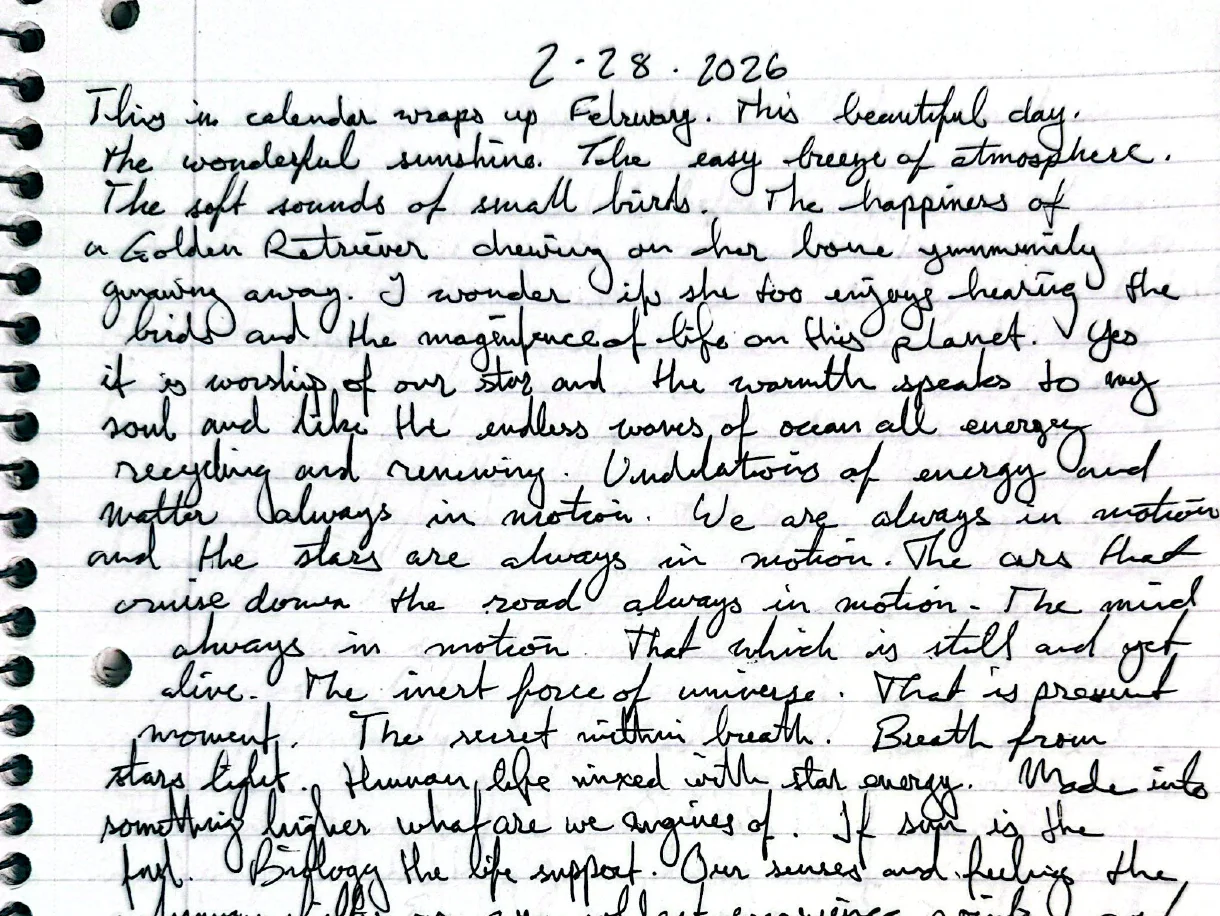 2.28.2026
This in calendar wraps up Februrary. This beautiful day.
the wonderful sunshine. The easy breeze of atmosphere.
The soft sounds of small birds. The happiness of
a Golden Retriever chewing on her bone
gnawing away. I wonder if she too enjoys hearing the
birds and the of life on this planet. Yes
it is worship of our star and the warmth speaks to my
soul and like the endless waves of ocean all energy
recycling and renewing. Undulations of energy and
matter always in motion. We are always in motion
and the stars are always in motion. The cars that
cruise down the road always in motion. The mind
always in motion. That which is still and yet
alive. The inert force of universe. That is present
moment. The secret within breath. Breath from
stars light. Human life mixed with star energy. Made into
something higher what are we engines of. If sun is the
fuel. Biology the life support. Our senses and feeling the